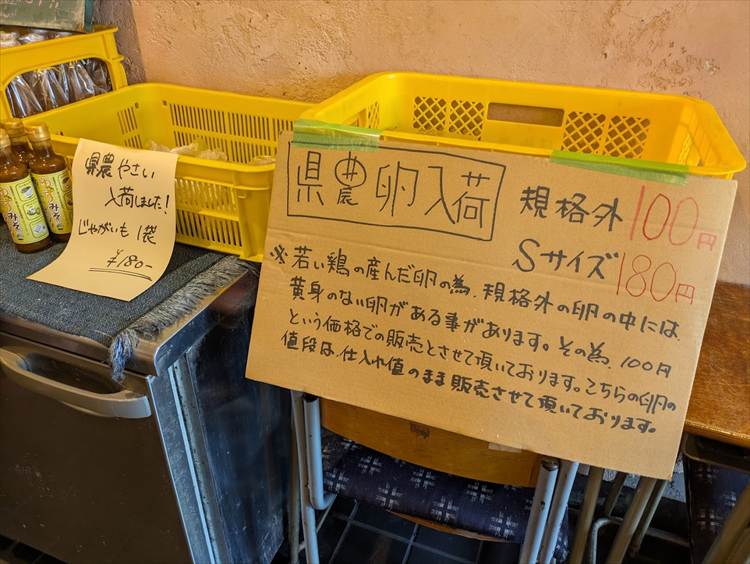 県農やさい
入荷しました!
じゃがいも 1袋
¥180-
県農卵入荷
規格外 100円
Sサイズ 180円
※若い鶏の産んだ卵の為、規格外の卵の中には、
黄身のない卵がある事があります。その為、100円
という価格での販売とさせて頂いております。こちらの卵の
値段は、仕入れ値のまま販売させて頂いております。